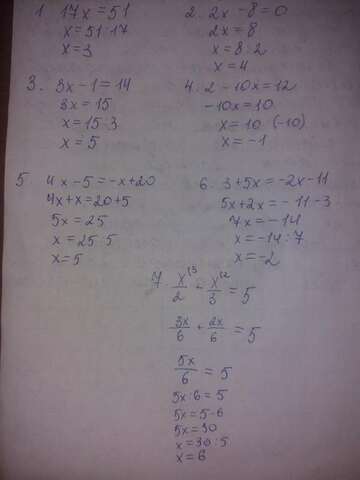 1. 17x = 51
x = 51:17
x = 3
2. 2x - 8 = 0
2x = 8
x = 8:2
x = 4
3. 3x - 1 = 14
3x = 15
x = 15:3
x = 5
4. 2 - 10x = 12
-10x = 10
x = 10:(-10)
x = -1
5 4x - 5 = -x + 20
4x + x = 20 + 5
5x = 25
x = 25:5
x = 5
6. 3 + 5x = -2x - 11
5x + 2x = -11 - 3
7x = -14
x = -14:7
x = -2
7 x/2 + x/3 = 5
3x/6 + 2x/6 = 5
5x/6 = 5
5x:6 = 5
5x = 5·6
5x = 30
x = 30:5
x = 6